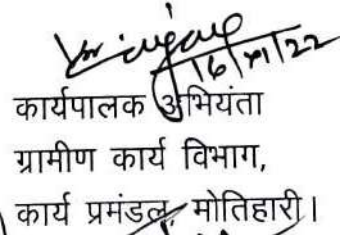 16/11/22
कार्यपालक अभियंता
ग्रामीण कार्य विभाग,
कार्य प्रमंडल, मोतिहारी।